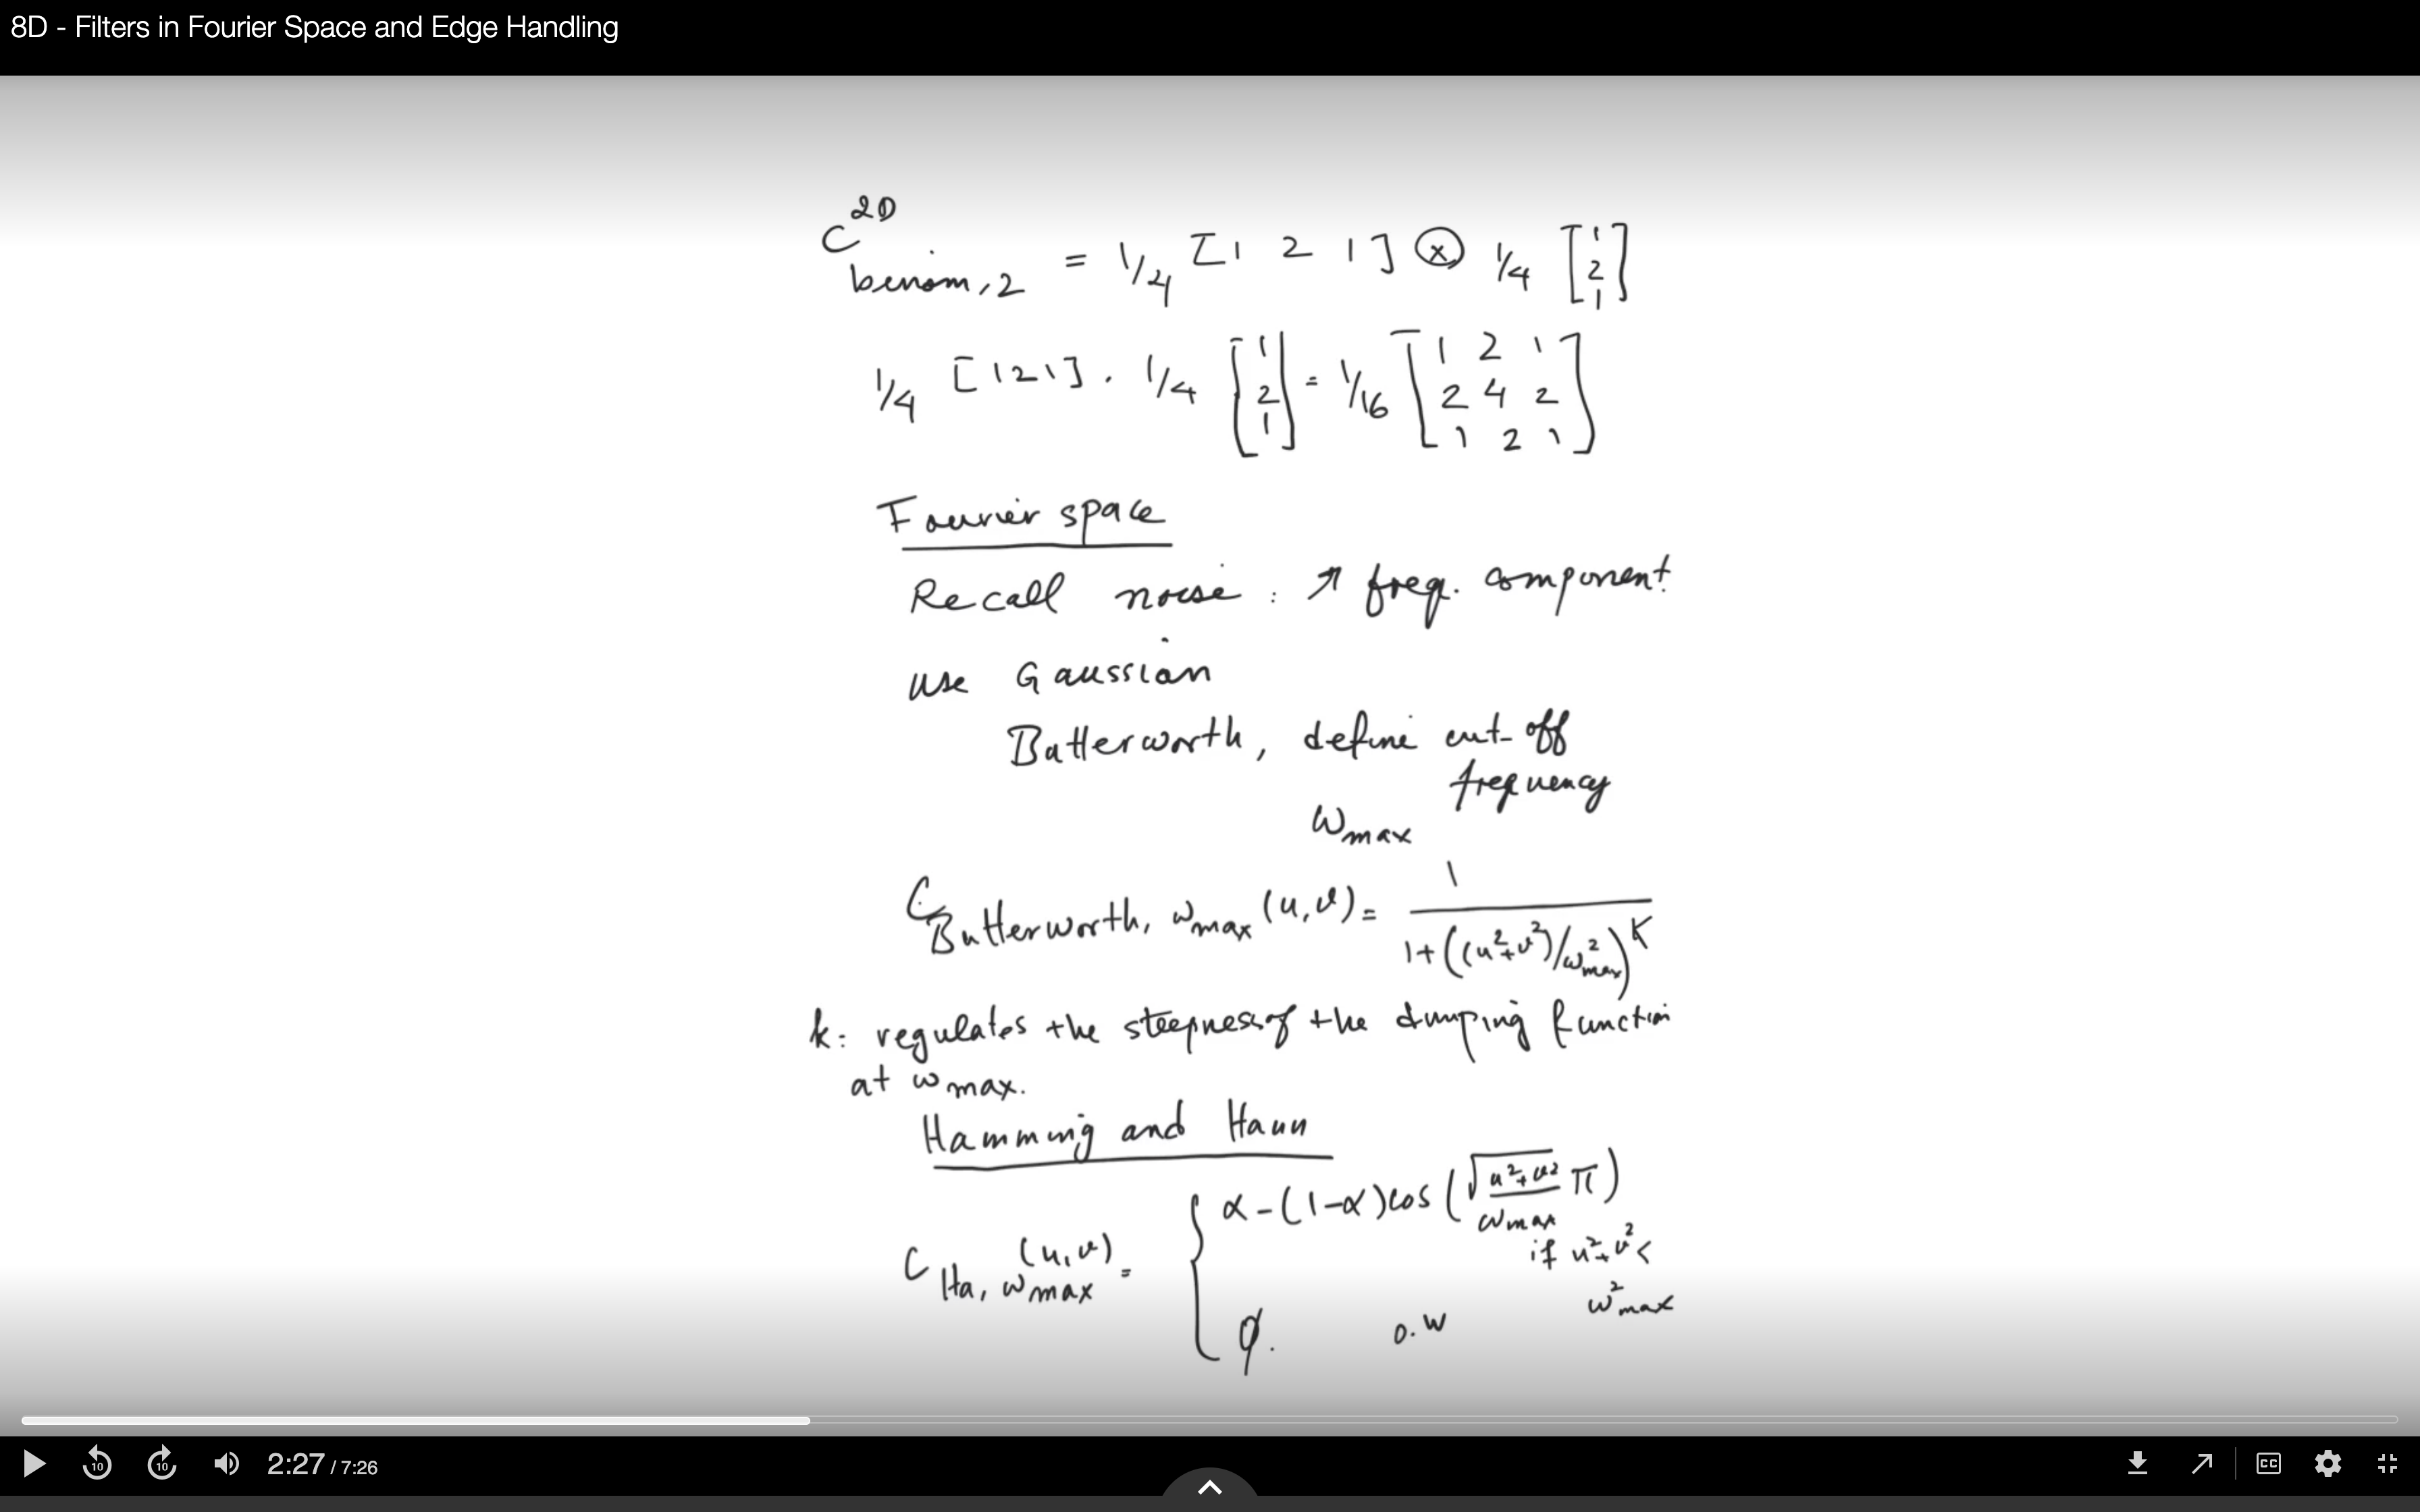 8D - Filters in Fourier Space and Edge Handling
C^{2D}_{binom,2} = 1/4 [1 2 1] ⊗ 1/4 [1 2 1]
1/4 [1 2 1] · 1/4 [1 2 1] = 1/16 [1 2 1 2 4 2 1 2 1]
Fourier space
Recall noise : ↗ freq. component.
use Gaussian
Butterworth, define cut-off
frequency
ω_max
C_{Butterworth, ω_max}(u,v) = 1 / (1+((u²+v²)/ω²_max)^K)
k: regulates the steepness of the dumping function
at ω_max.
Hamming and Hann
C_{Ha, ω_max}(u,v) = { α-(1-α)cos(√(u²+v²)/ω_max π)
if u²+v² <
ω²_max
0. o.w
10 10 2:27 / 7:26 CC